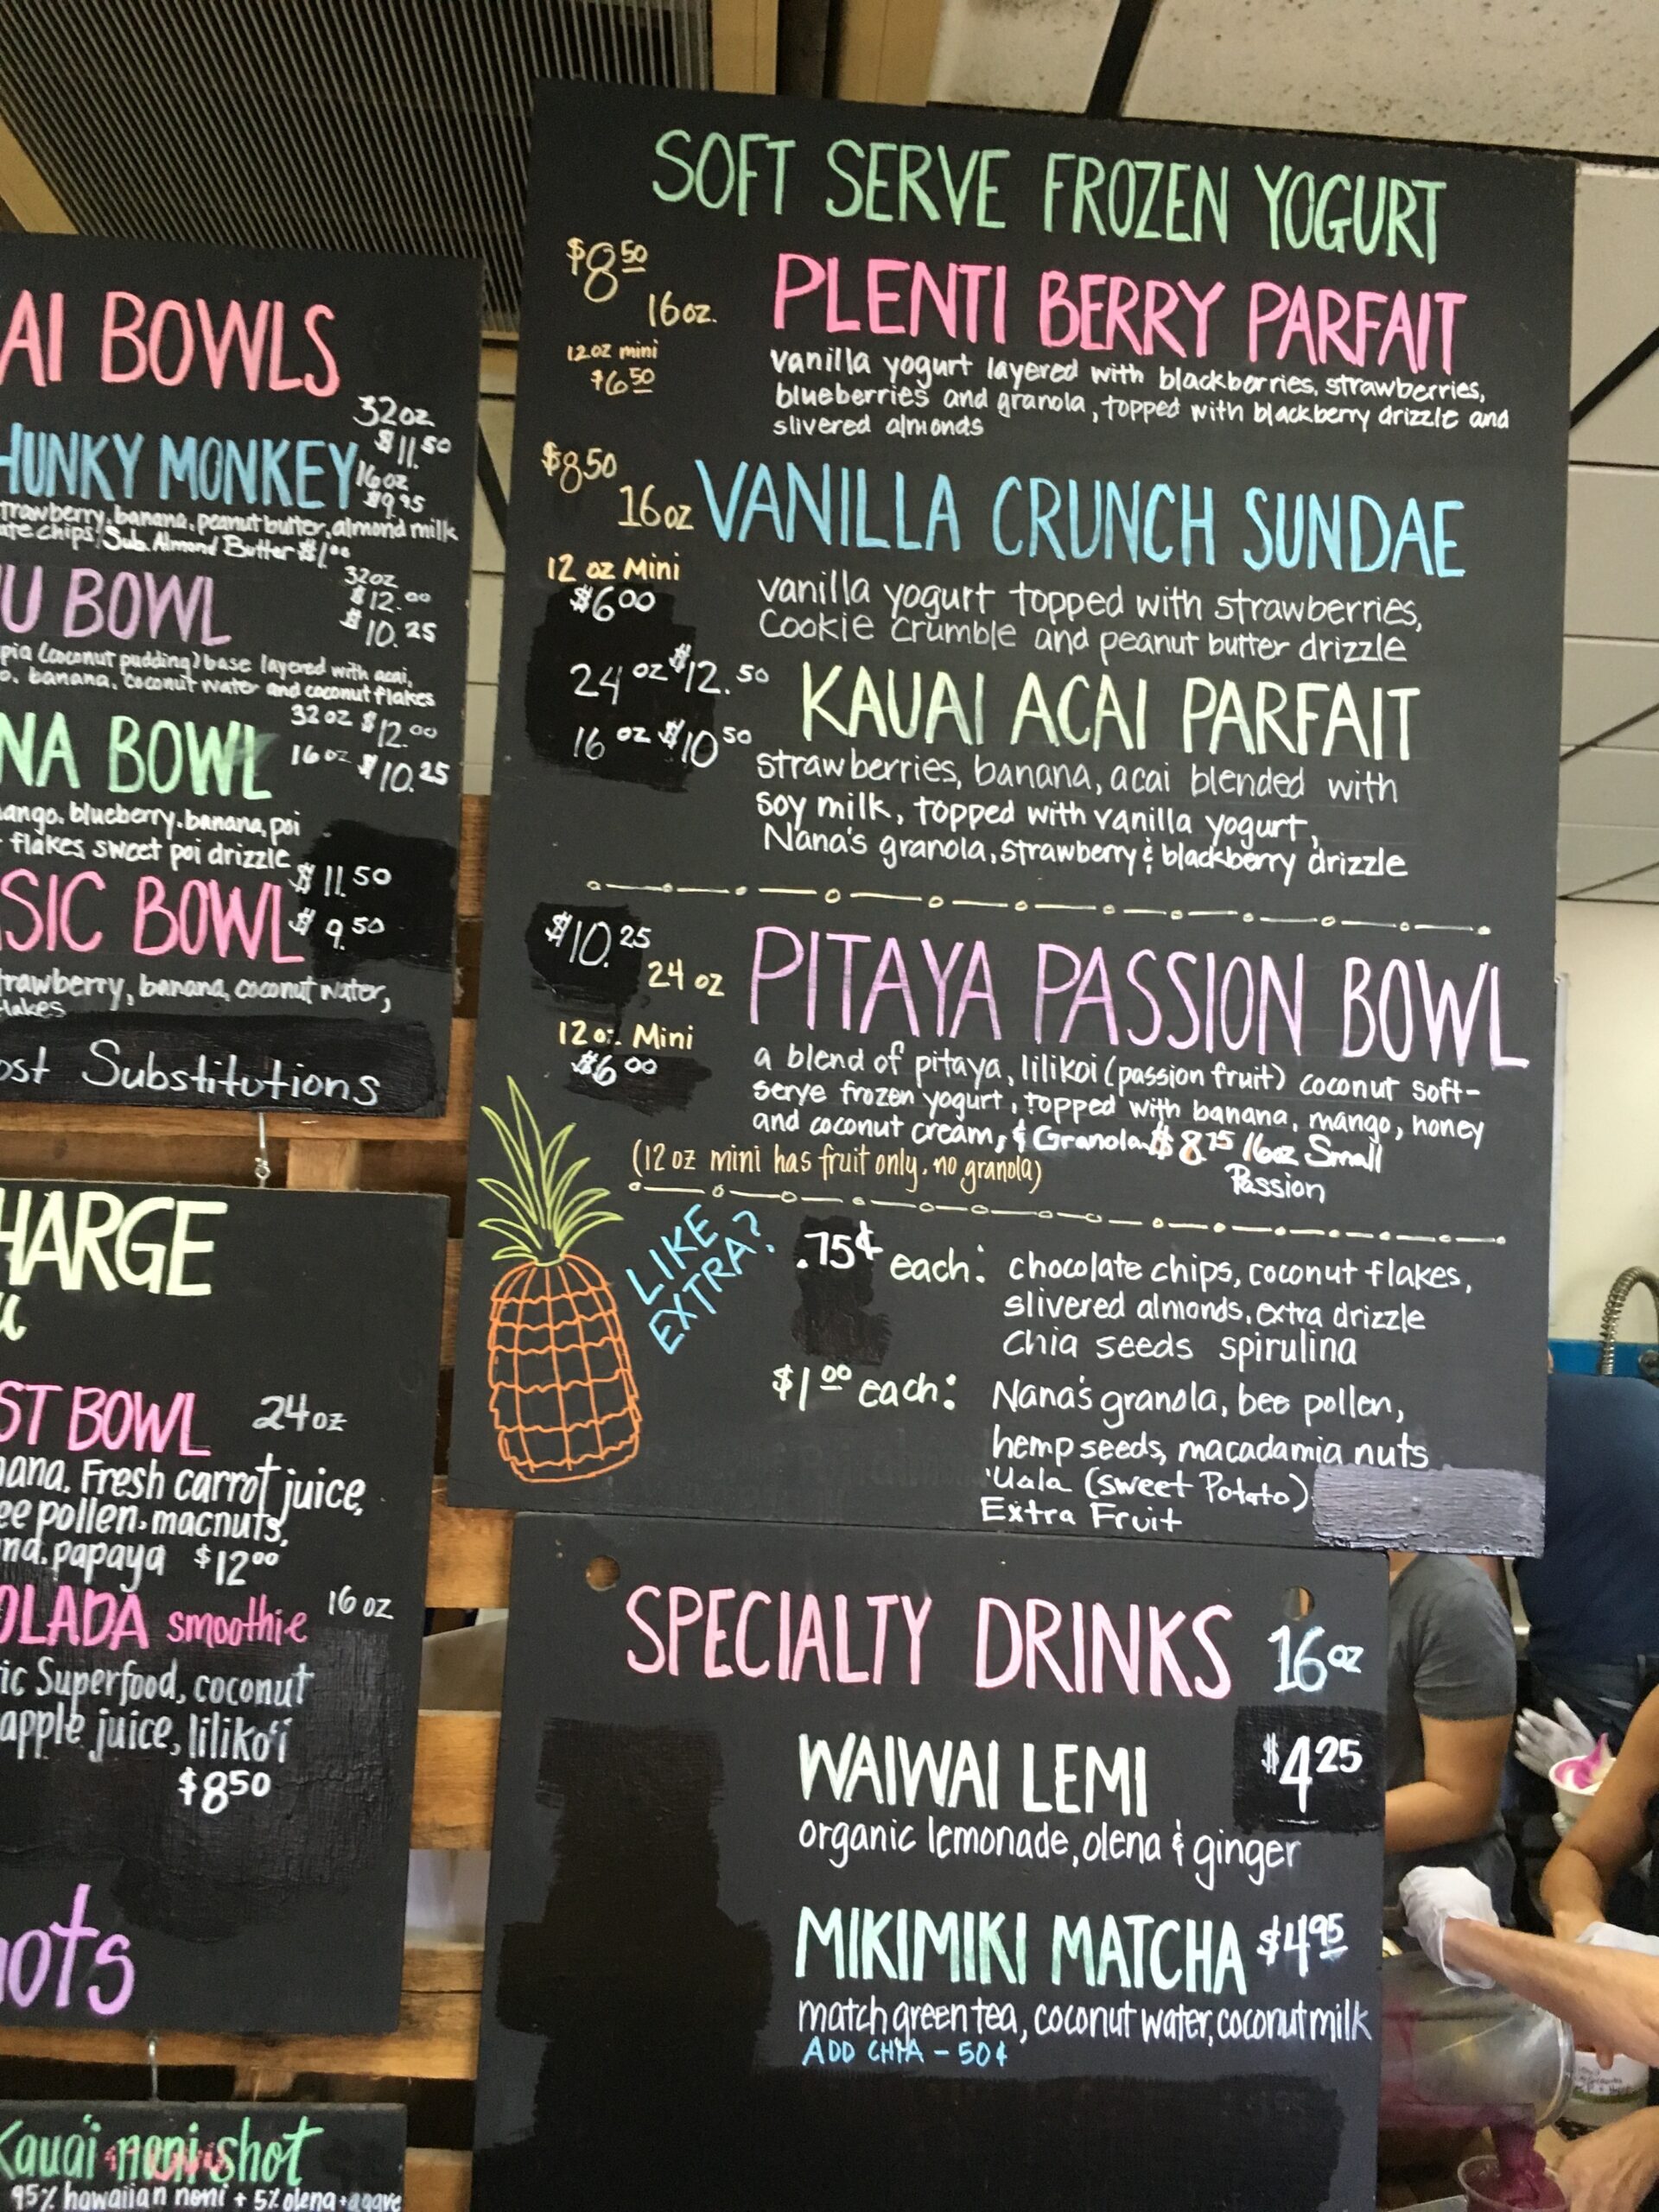 AI BOWLS
32oz
$11.50
HUNKY MONKEY
16oz
$9.95
trawberry, banana, peanut butter, almond milk
ate chips Sub. Almond Butter $1.00
32oz
$12.00
U BOWL
$10.25
pia (coconut pudding) base layered with acai,
o, banana, coconut water and coconut flakes
32oz $12.00
NA BOWL
16oz $10.25
ango, blueberry, banana, poi
flakes, sweet poi drizzle
$11.50
SIC BOWL
$9.50
trawberry, banana, coconut water,
flakes
ost Substitutions
HARGE
ST BOWL 24oz
nana, Fresh carrot juice,
ee pollen, macnuts,
nd, papaya $12.00
OLADA smoothie 16oz
ic Superfood, coconut
apple juice, liliko'i
$8.50
ots
Kauai noni shot
95% hawaiian noni + 5% olena + agave
SOFT SERVE FROZEN YOGURT
$8.50
16oz.
PLENTI BERRY PARFAIT
12oz mini
$6.50
vanilla yogurt layered with blackberries, strawberries,
blueberries and granola, topped with blackberry drizzle and
slivered almonds
$8.50
16oz
VANILLA CRUNCH SUNDAE
12 oz Mini
$6.00
vanilla yogurt topped with strawberries,
Cookie crumble and peanut butter drizzle
24 oz $12.50
KAUAI ACAI PARFAIT
16 oz $10.50
strawberries, banana, acai blended with
soy milk, topped with vanilla yogurt,
Nana's granola, strawberry & blackberry drizzle
$10.25
24 oz
PITAYA PASSION BOWL
12oz Mini
$6.00
a blend of pitaya, lilikoi (passion fruit) coconut soft-
serve frozen yogurt, topped with banana, mango, honey
and coconut cream, & Granola $8.75 16oz Small
Passion
(12 oz mini has fruit only, no granola)
LIKE
EXTRA?
.75¢ each: chocolate chips, coconut flakes,
slivered almonds, extra drizzle
Chia seeds spirulina
$1.00 each: Nana's granola, bee pollen,
hemp seeds, macadamia nuts
'Uala (sweet Potato)
Extra Fruit
SPECIALTY DRINKS 16oz
WAIWAI LEMI $4.25
organic lemonade, olena & ginger
MIKIMIKI MATCHA $4.95
match green tea, coconut water, coconut milk
ADD CHIA - 50¢